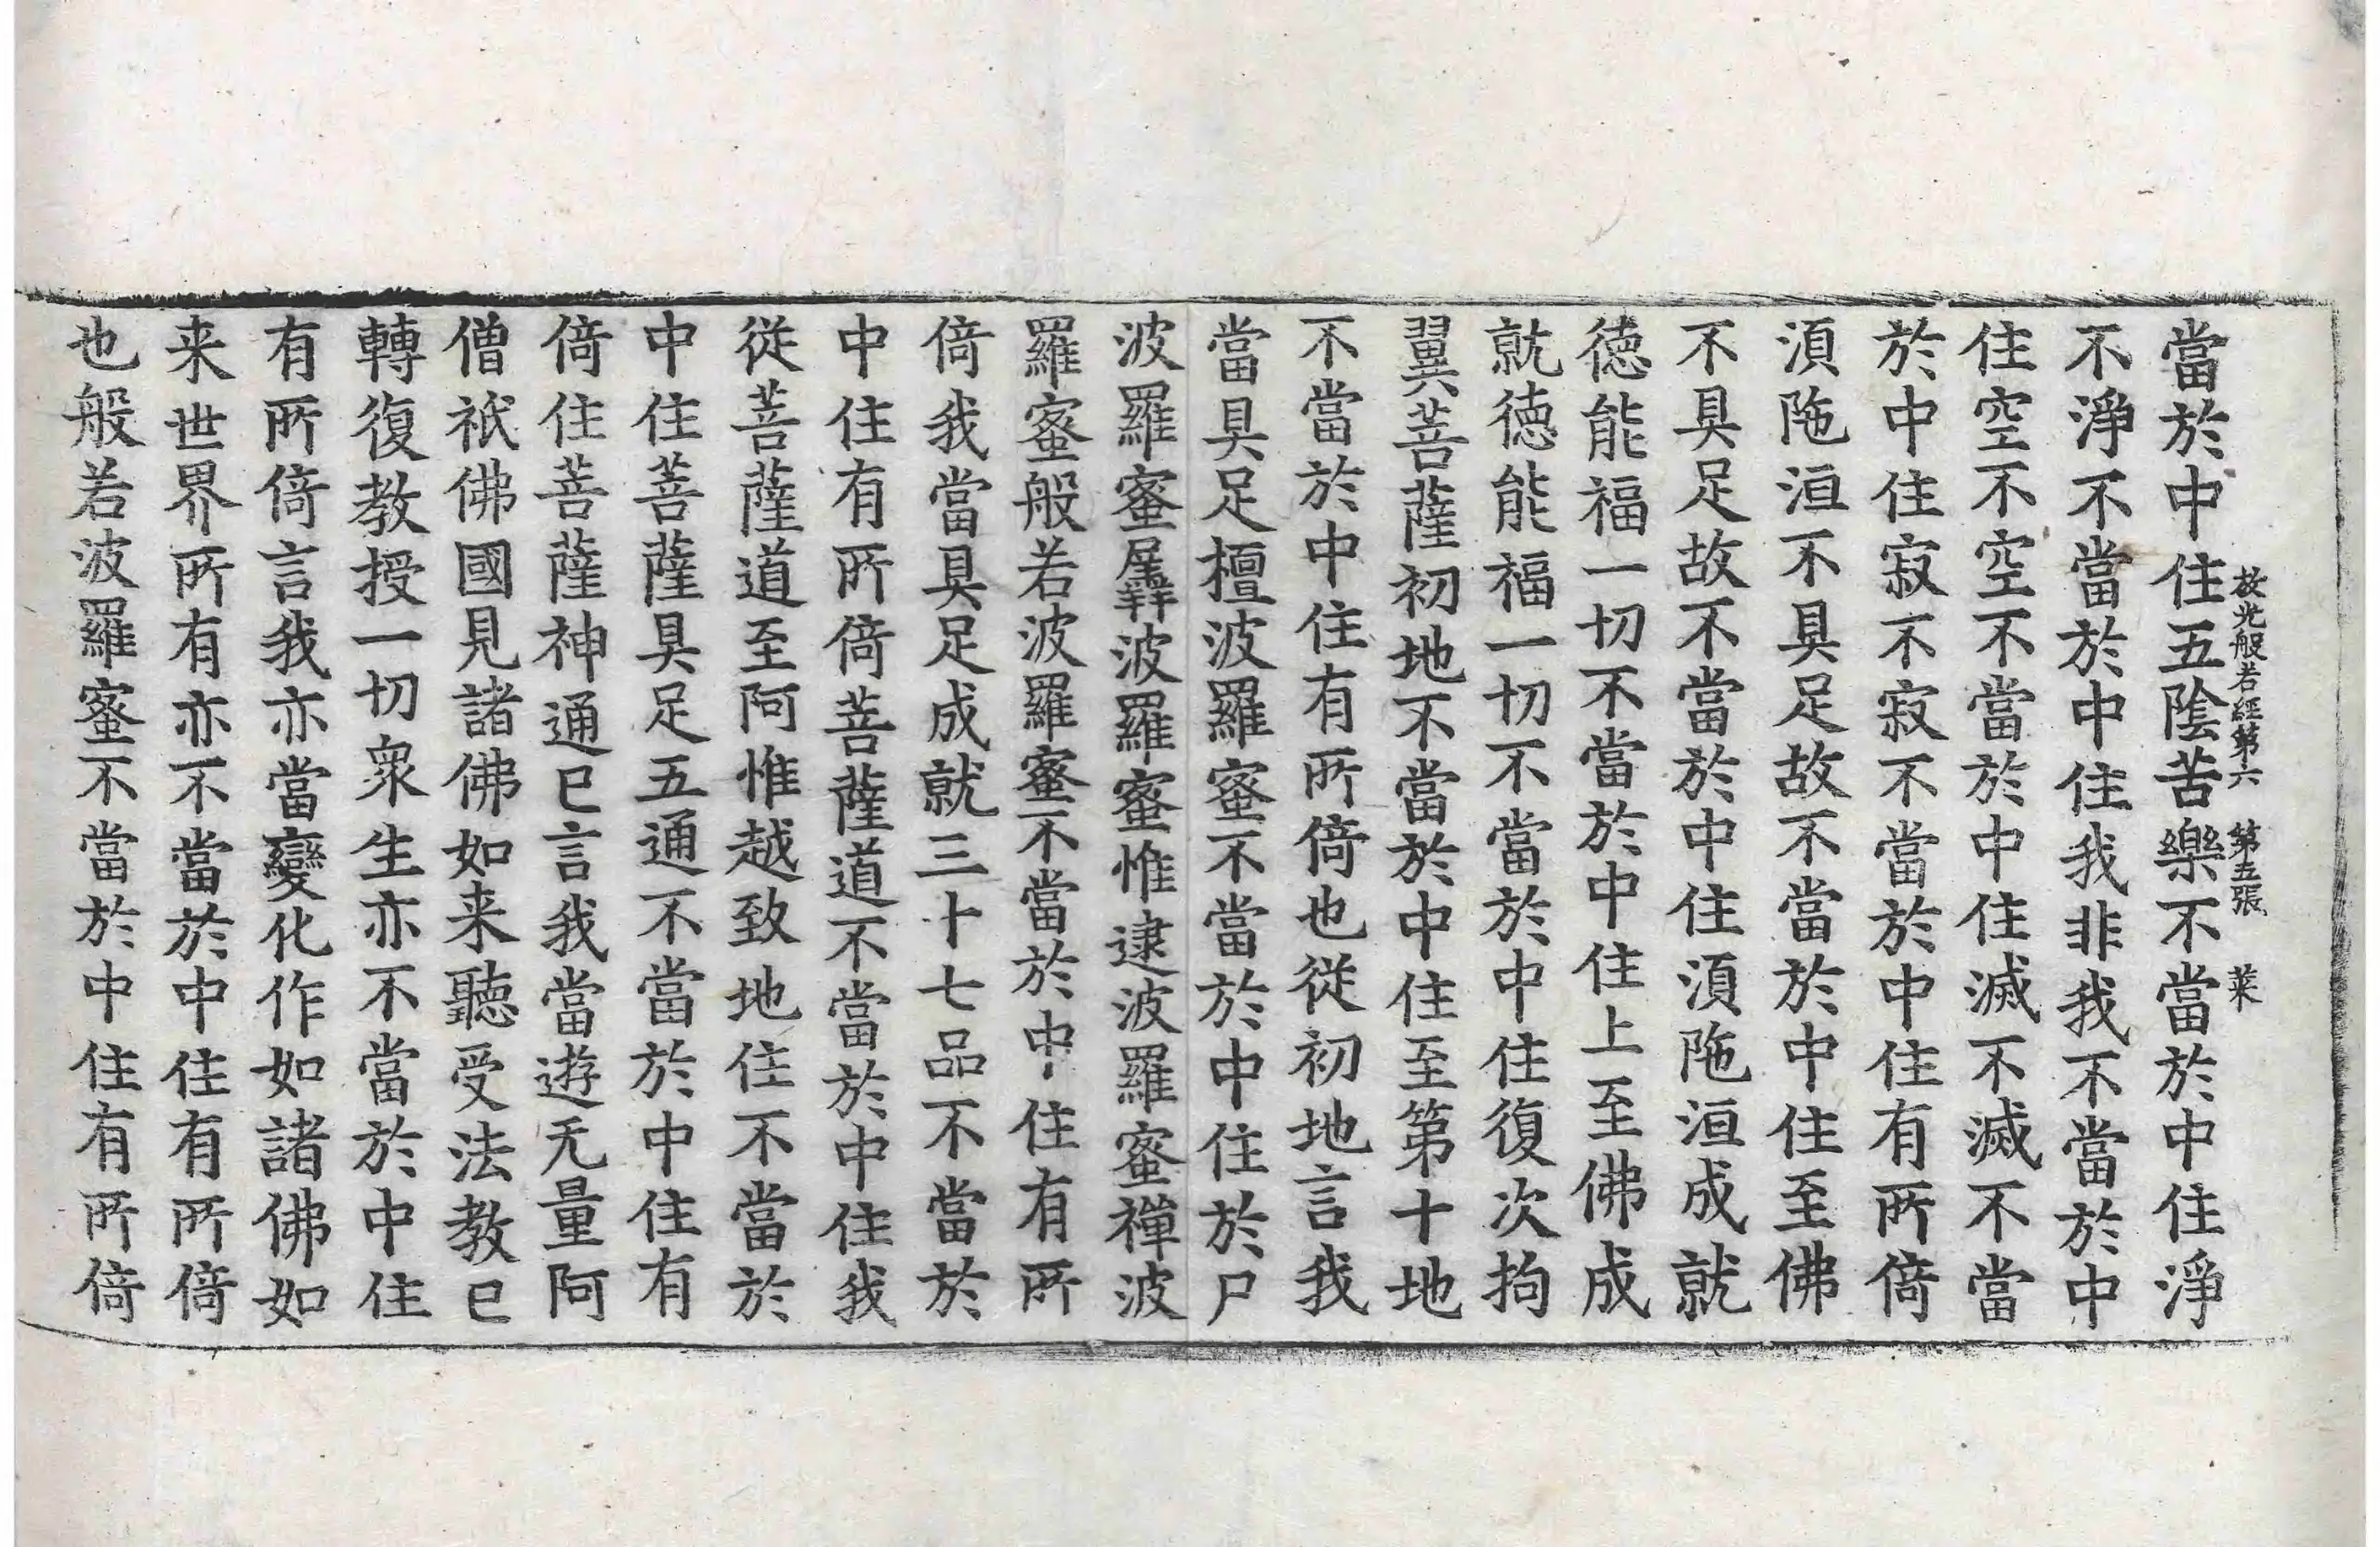 放光般若經第六 第五張 菜
當於中住五陰苦樂不當於中住淨
不淨不當於中住我非我不當於中
住空不空不當於中住滅不滅不當
於中住寂不寂不當於中住有所倚
湏陁洹不具足故不當於中住至佛
不具足故不當於中住湏陁洹成就
徳能福一切不當於中住上至佛成
就徳能福一切不當於中住復次拘
翼菩薩初地不當於中住至第十地
不當於中住有所倚也從初地言我
當具足檀波羅蜜不當於中住於尸
波羅蜜羼波羅蜜惟逮波羅蜜禪波
羅蜜般若波羅蜜不當於中住有所
倚我當具足成就三十七品不當於
中住有所倚菩薩道不當於中住我
從菩薩道至阿惟越致地住不當於
中住菩薩具足五通不當於中住有
倚住菩薩神通已言我當遊无量阿
僧祇佛國見諸佛如来聽受法教已
轉復教授一切衆生亦不當於中住
有所倚言我亦當變化作如諸佛如
来世界所有亦不當於中住有所倚
也般若波羅蜜不當於中住有所倚